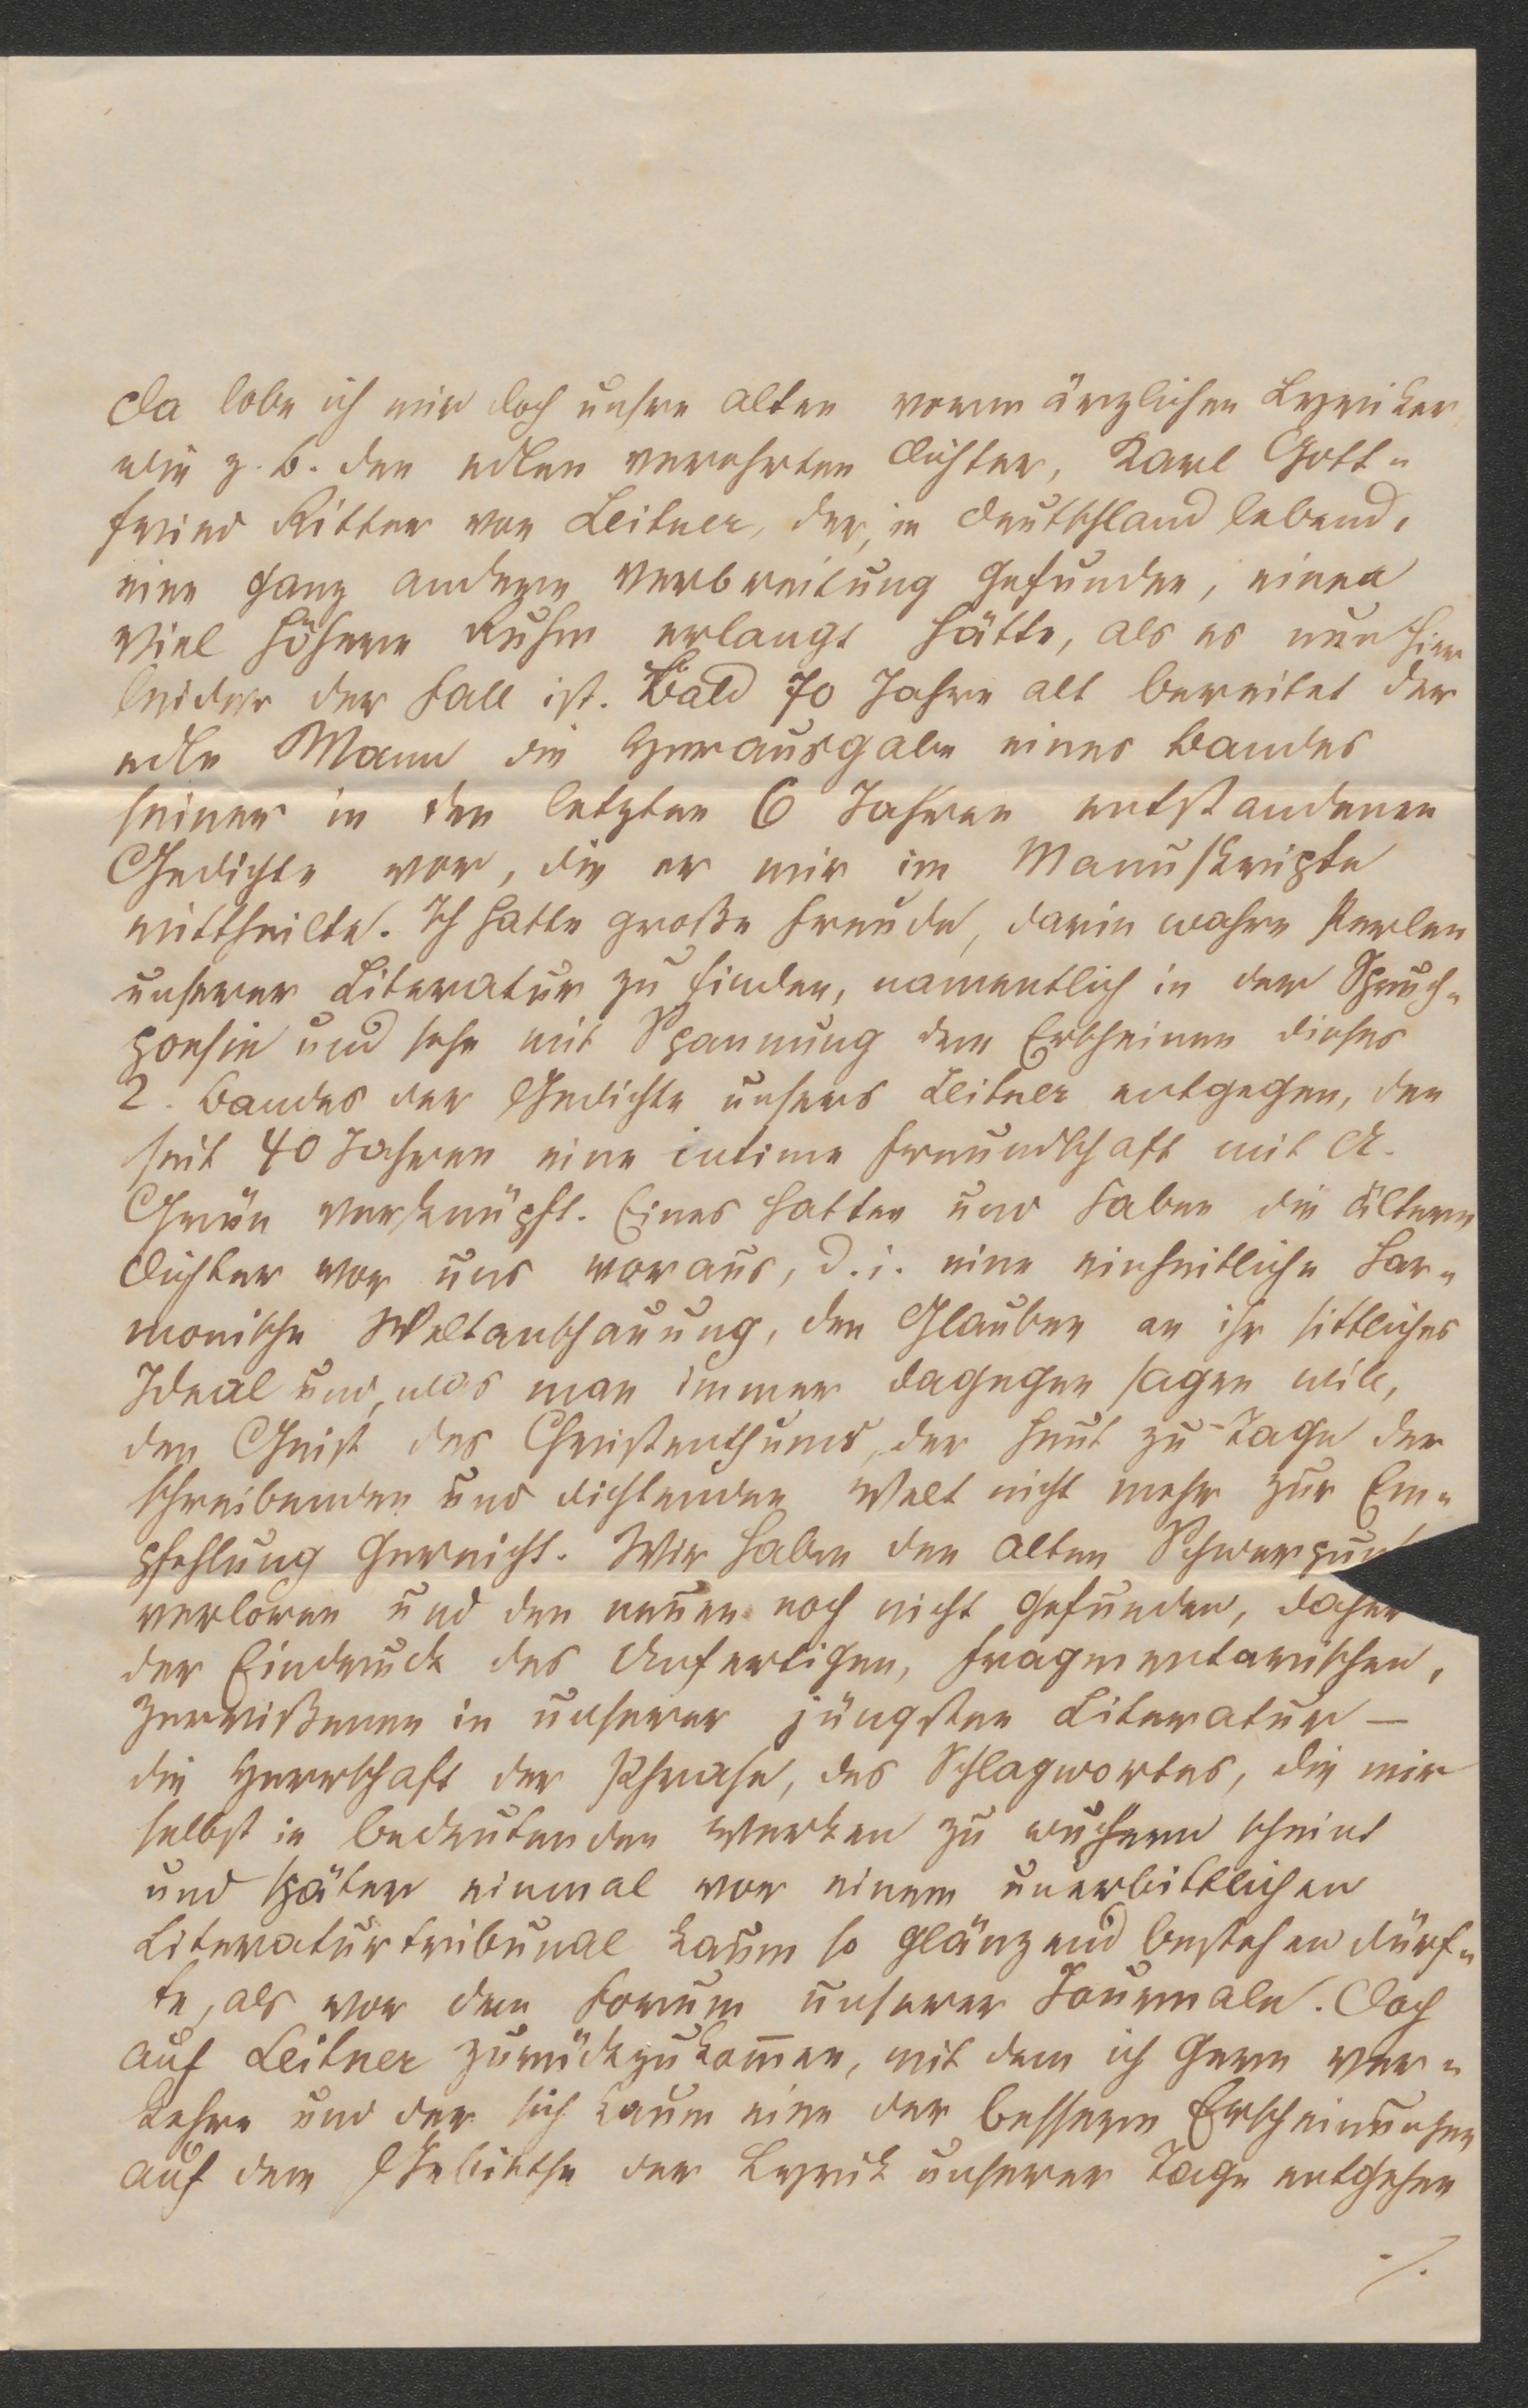 Da lobe ich mir doch unsre alten vormärzlichen Lyriker
wie z. B. den edlen verehrten Dichter, Karl Gott-
fried Ritter von Leitner, der, in Deutschland lebend,
eine ganz andere Verbreitung gefunden, einen
viel höhern Ruhm erlangt hätte, als es nun hier
leider der Fall ist. Bald 70 Jahre alt bereitet der
edle Mann die Herausgabe eines Bandes
seiner in den letzten 6 Jahren entstandenen
Gedichte vor, die er mir im Manuskripte
mittheilte. Ich hatte große Freude, darin wahre Perlen
unserer Literatur zu finden, namentlich in der Spruch-
poesie und sehe mit Spannung dem Erscheinen dieses
2. Bandes der Gedichte unsers Leitner entgegen, den
seit 40 Jahren eine intime Freundschaft mit A.
Grün verknüpft. Eines hatten und haben die ältern
Dichter vor uns voraus, d. i. eine einheitliche har-
monische Weltanschauung, den Glauben an ihr sittliches
Ideal und, was man immer dagegen sagen will,
den Geist des Christenthums, der heut zu Tage der
schreibenden und dichtenden Welt nicht mehr zur Em-
pfehlung gereicht. Wir haben den alten Schwerpunkt
verloren und den neuen noch nicht gefunden, daher
der Eindruck des Unfertigen, Fragmentarischen,
Zerrißenen in unserer jüngsten Literatur –
die Herrschaft der Phrase, des Schlagwortes, die mir
selbst in bedeutenden Werken zu wuchern scheint
und später einmal vor einem unerbittlichen
Literaturtribunal kaum so glänzend bestehen dürf-
te, als vor dem Forum unserer Journale. Doch
auf Leitner zurückzukom̄en, mit dem ich gern ver-
kehre und der sich kaum eine der bessern Erscheinungen
auf dem Gebiethe der Lyrik unserer Tage entgehen
./.